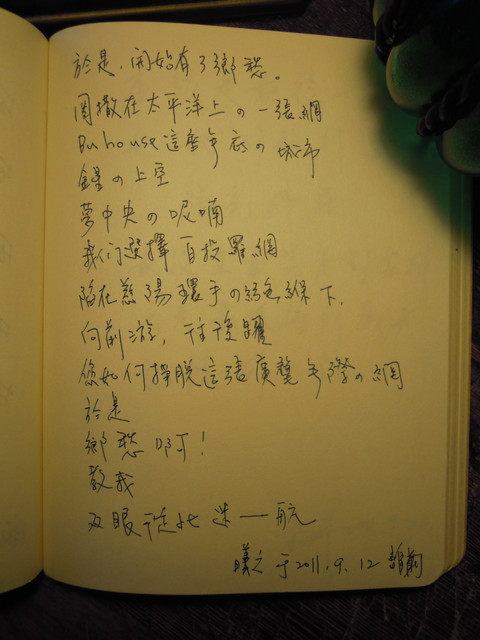 於是，開始有了鄉愁。
因撒在太平洋上の一張網
Buhouse這座無底の城市
鐘の上空
夢中央の呢喃
我们選擇自投羅網
陷在慈湯環手の綠絲線下，
向前游，往後躍
您如何掙脫這張廣璧無際の網
於是
鄉愁啊！
教我
双眼從此迷——航
曦之于2011.9.12